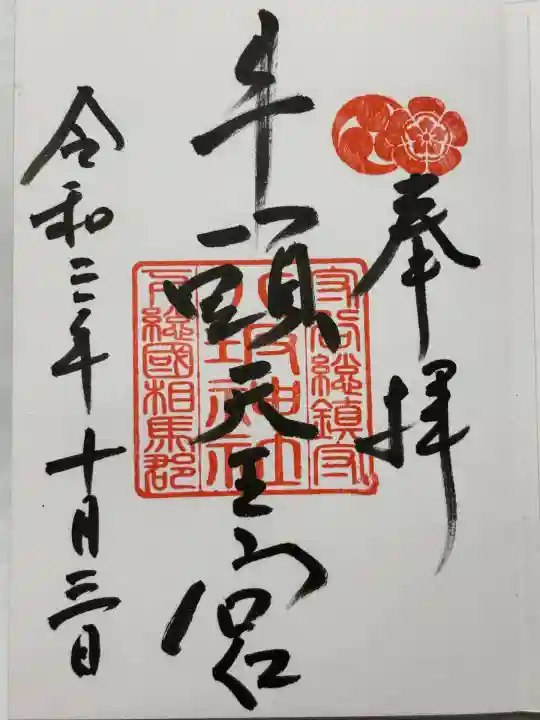 奉拝
守谷総鎮守
八坂神社
下総國相馬郡
牛頭天王宮
令和二年十月三日